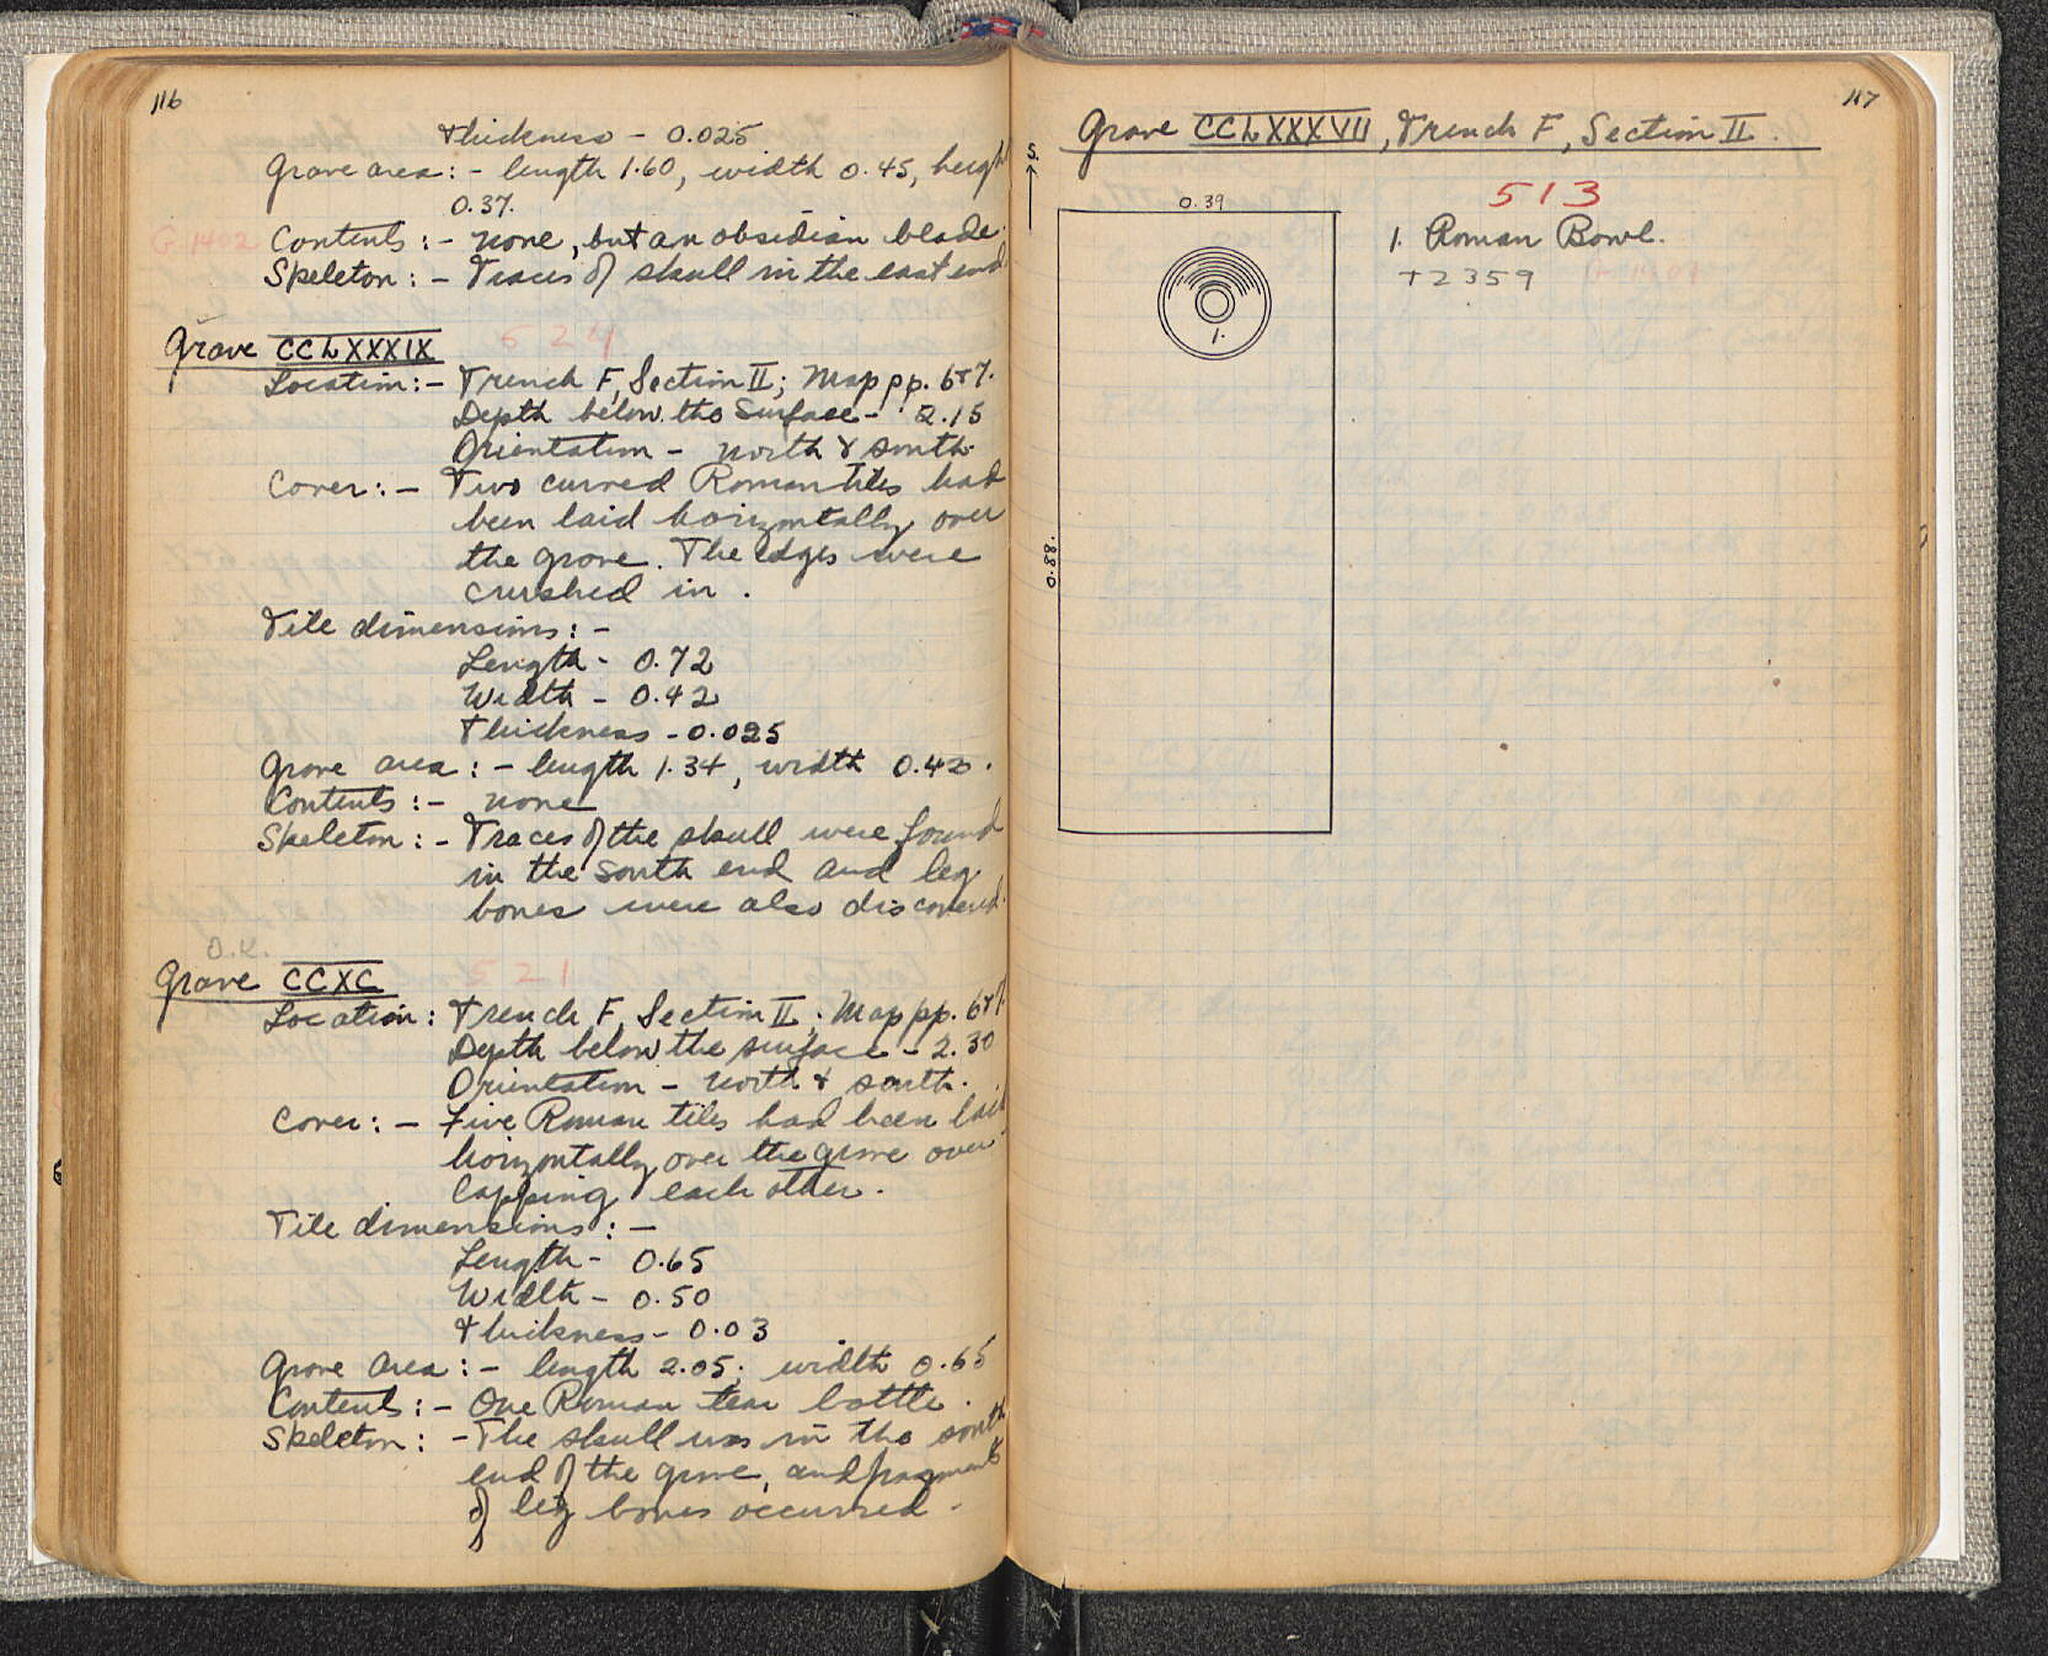 116
Thickness - 0.025
Grave area: - length 1.60, width 0.45, height
0.37.
G 1402 Contents: - none, but an obsidian blade.
Skeleton: - Traces of skull in the east end
Grave CCLXXXIX 524
Location: - Trench F, Section II; Map pp. 6+7.
Depth below the Surface - 2.15
Orientation - North & South.
Cover: - Two curved Roman tiles had
been laid horizontally over
the grave. The edges were
crushed in.
Tile dimensions: -
Length - 0.72
Width - 0.42
Thickness - 0.025
Grave area: - length 1.34, width 0.43.
Contents: - none
Skeleton: - Traces of the skull were found
in the south end and leg
bones were also discovered.
O.K.
Grave CCXC 521
Location: Trench F, Section II; Map pp. 6+7.
Depth below the surface - 2.30
Orientation - North & south.
Cover: - Five Roman tiles had been laid
horizontally over the grave over
lapping each other.
Tile dimensions: -
Length - 0.65
Width - 0.50
Thickness - 0.03
Grave area: - length 2.05; width 0.65
Contents: - One Roman tear bottle.
Skeleton: - The skull was in the south
end of the grave, and fragments
of leg bones occurred -
117
Grave CCLXXXVII, Trench F, Section II.
S.
0.39
0.88.
1.
513
1. Roman Bowl.
T2359